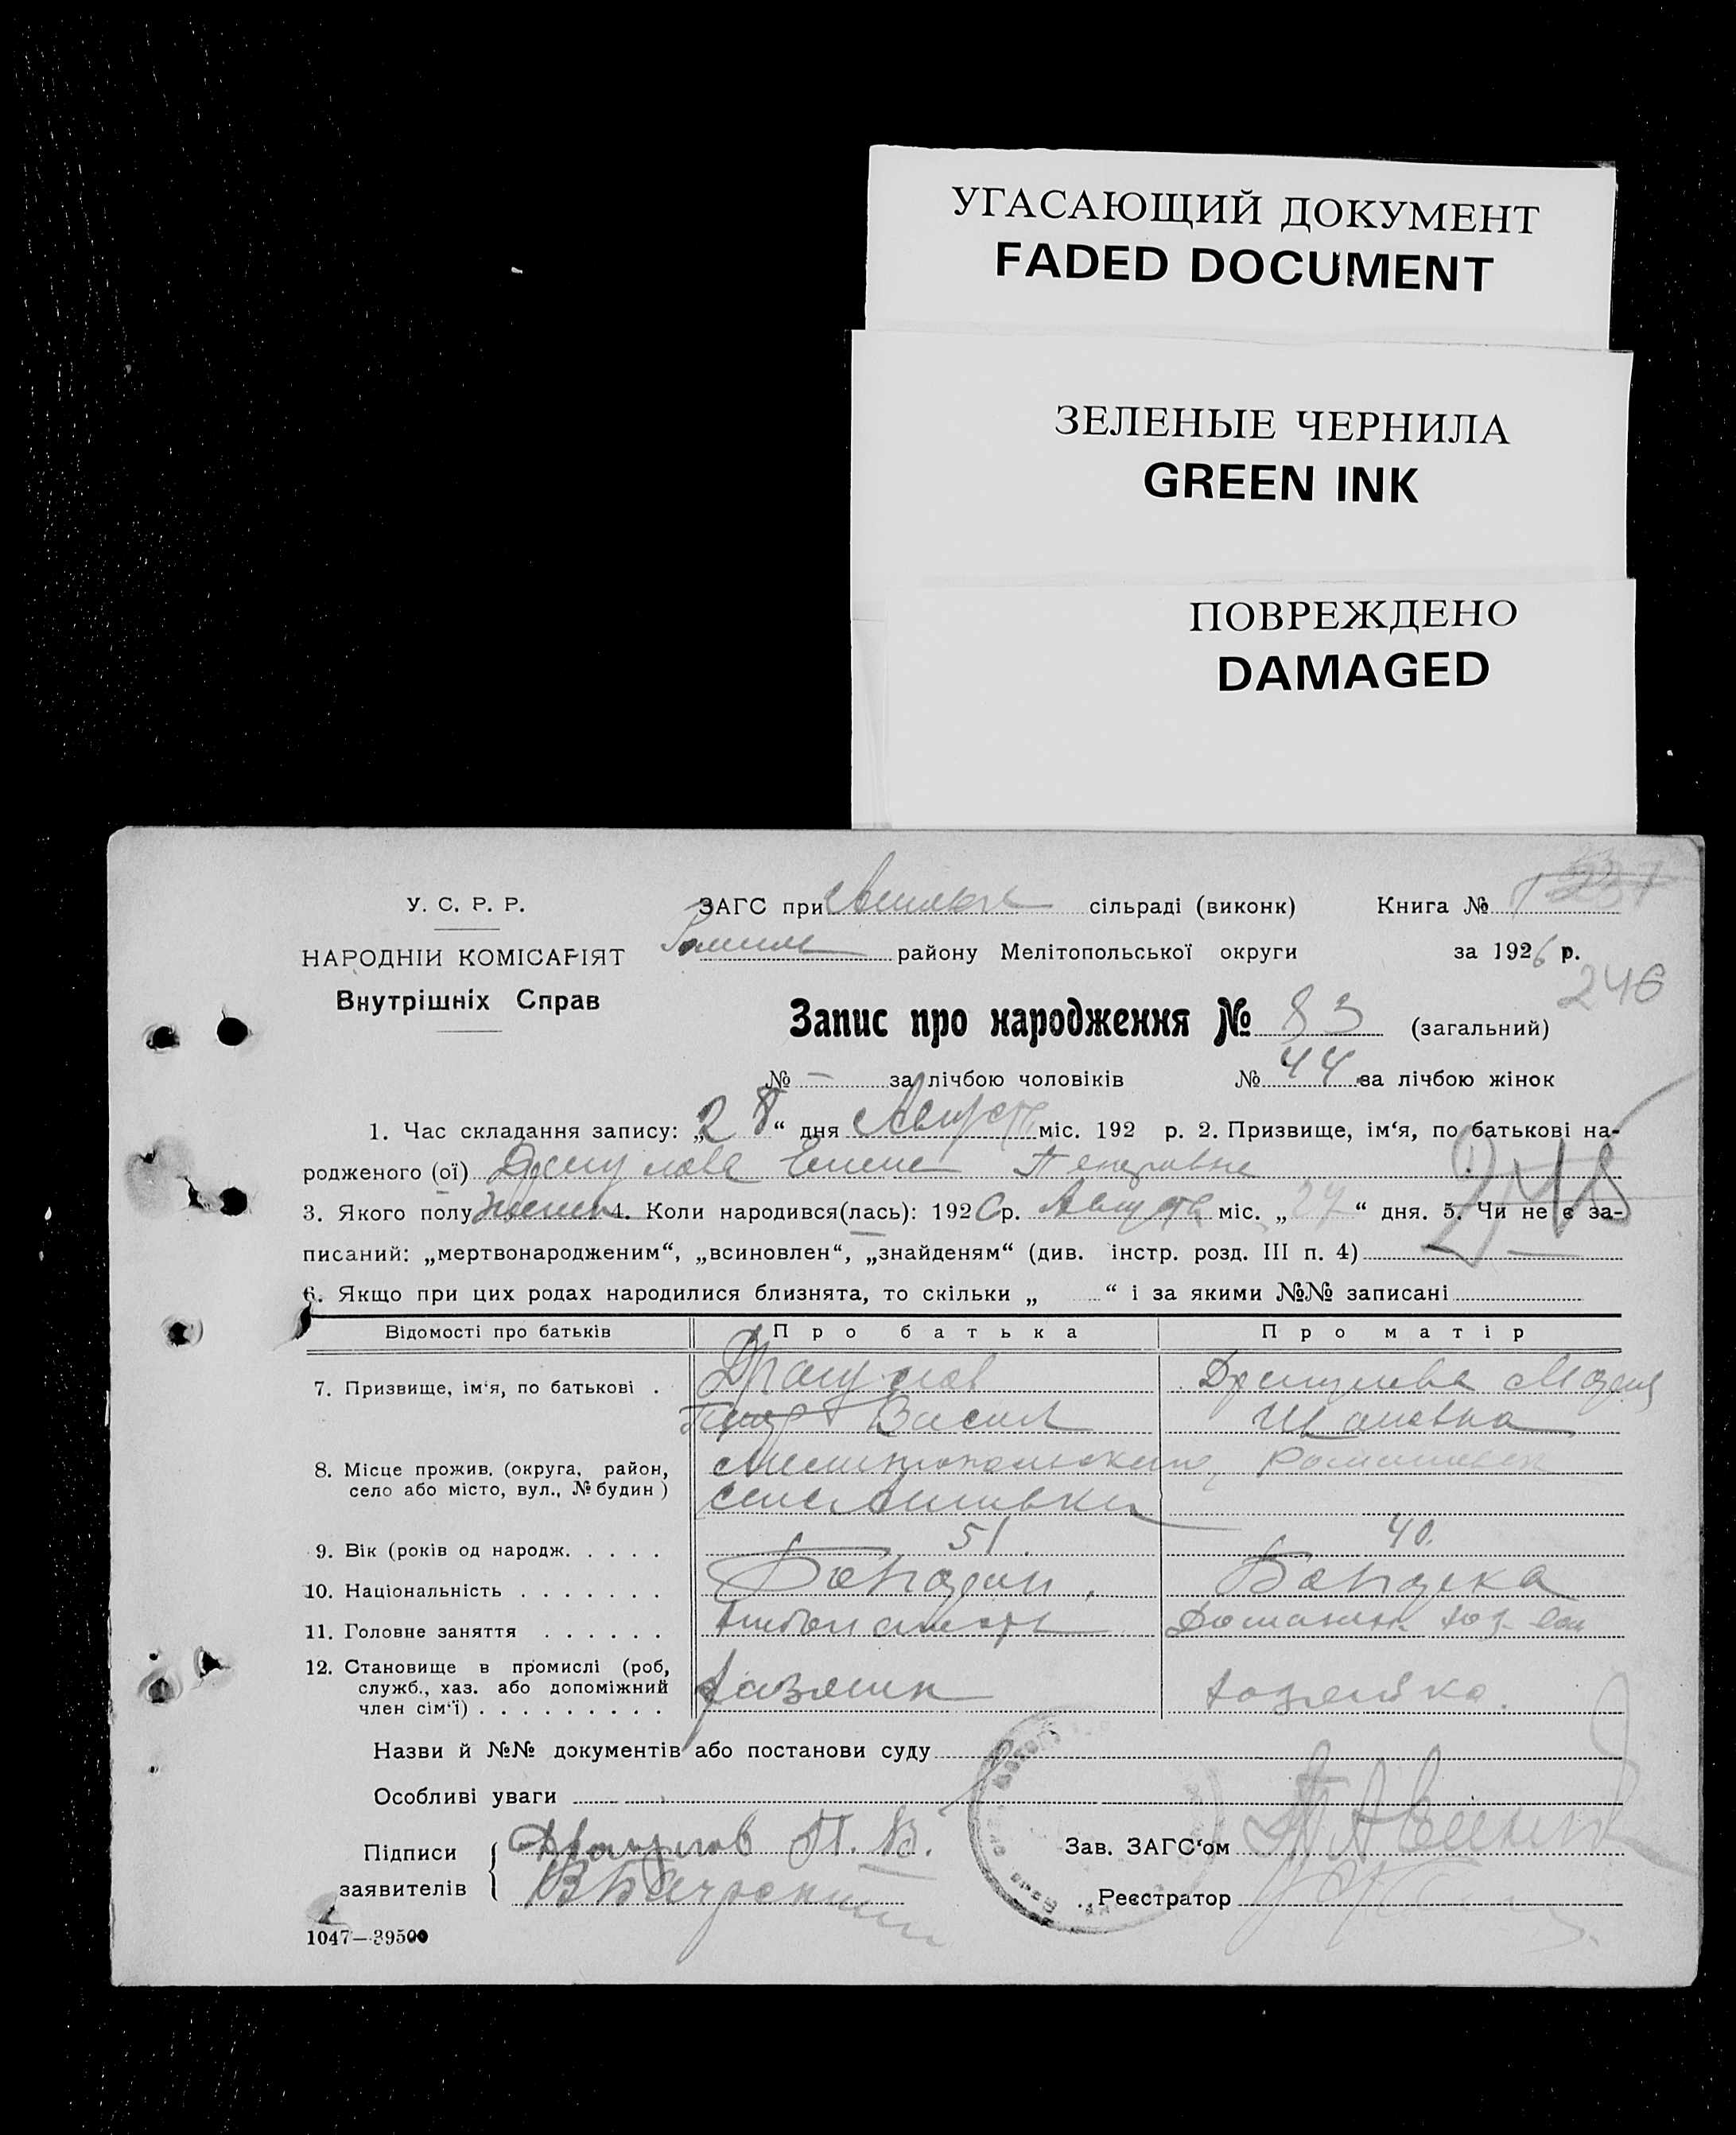 УГАСАЮЩИЙ ДОКУМЕНТ
FADED DOCUMENT
ЗЕЛЕНЫЕ ЧЕРНИЛА
GREEN INK
ПОВРЕЖДЕНО
DAMAGED
У. С. Р. Р.
НАРОДНІИ КОМІСАРІЯТ
Внутрішніх Справ
ЗАГС при сільраді (виконк) Книга №
району Мелітопольської округи за 1926 р.
246
Запис про народження № 83 (загальний)
№ — за лічбою чоловіків № 44 за лічбою жінок
1. Час складання запису: „28“ дня Августа міс. 192 р. 2. Призвище, ім‘я, по батькові на-
родженого (ої) Драгулова Елена Петровна
3. Якого полу женск 4. Коли народився(лась): 1926р. Августа міс. „27“ дня. 5. Чи не є за-
писаний: „мертвонародженим“, „всиновлен“, „знайденям“ (див. інстр. розд. III п. 4)
245
6. Якщо при цих родах народилися близнята, то скільки „ “ і за якими №№ записані
Відомості про батьків Про батька Про матір
7. Призвище, ім‘я, по батькові . Драгулов Драгулева
Петр Васил
8. Місце прожив. (округа, район, Мелитопольский, Романовск
село або місто, вул., № будин )
9. Вік (років од народж. . . . . 51. 40.
10. Національність . . . . . . . Болгарин. Болгарка
11. Головне заняття . . . . . . Хлебопашеств Домашн. хоз.
12. Становище в промислі (роб,
служб., хаз. або допоміжний Хазяин хозяйка.
член сім‘ї) . . . . . . . . .
Назви й №№ документів або постанови суду
Особливі уваги
Підписи Драгулов П. В. Зав. ЗАГС‘ом
заявителів Реєстратор
1047—39500